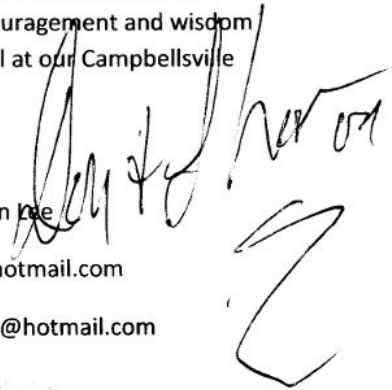 uragement and wisdom
l at our Campbellsville
n Lee
hotmail.com
@hotmail.com